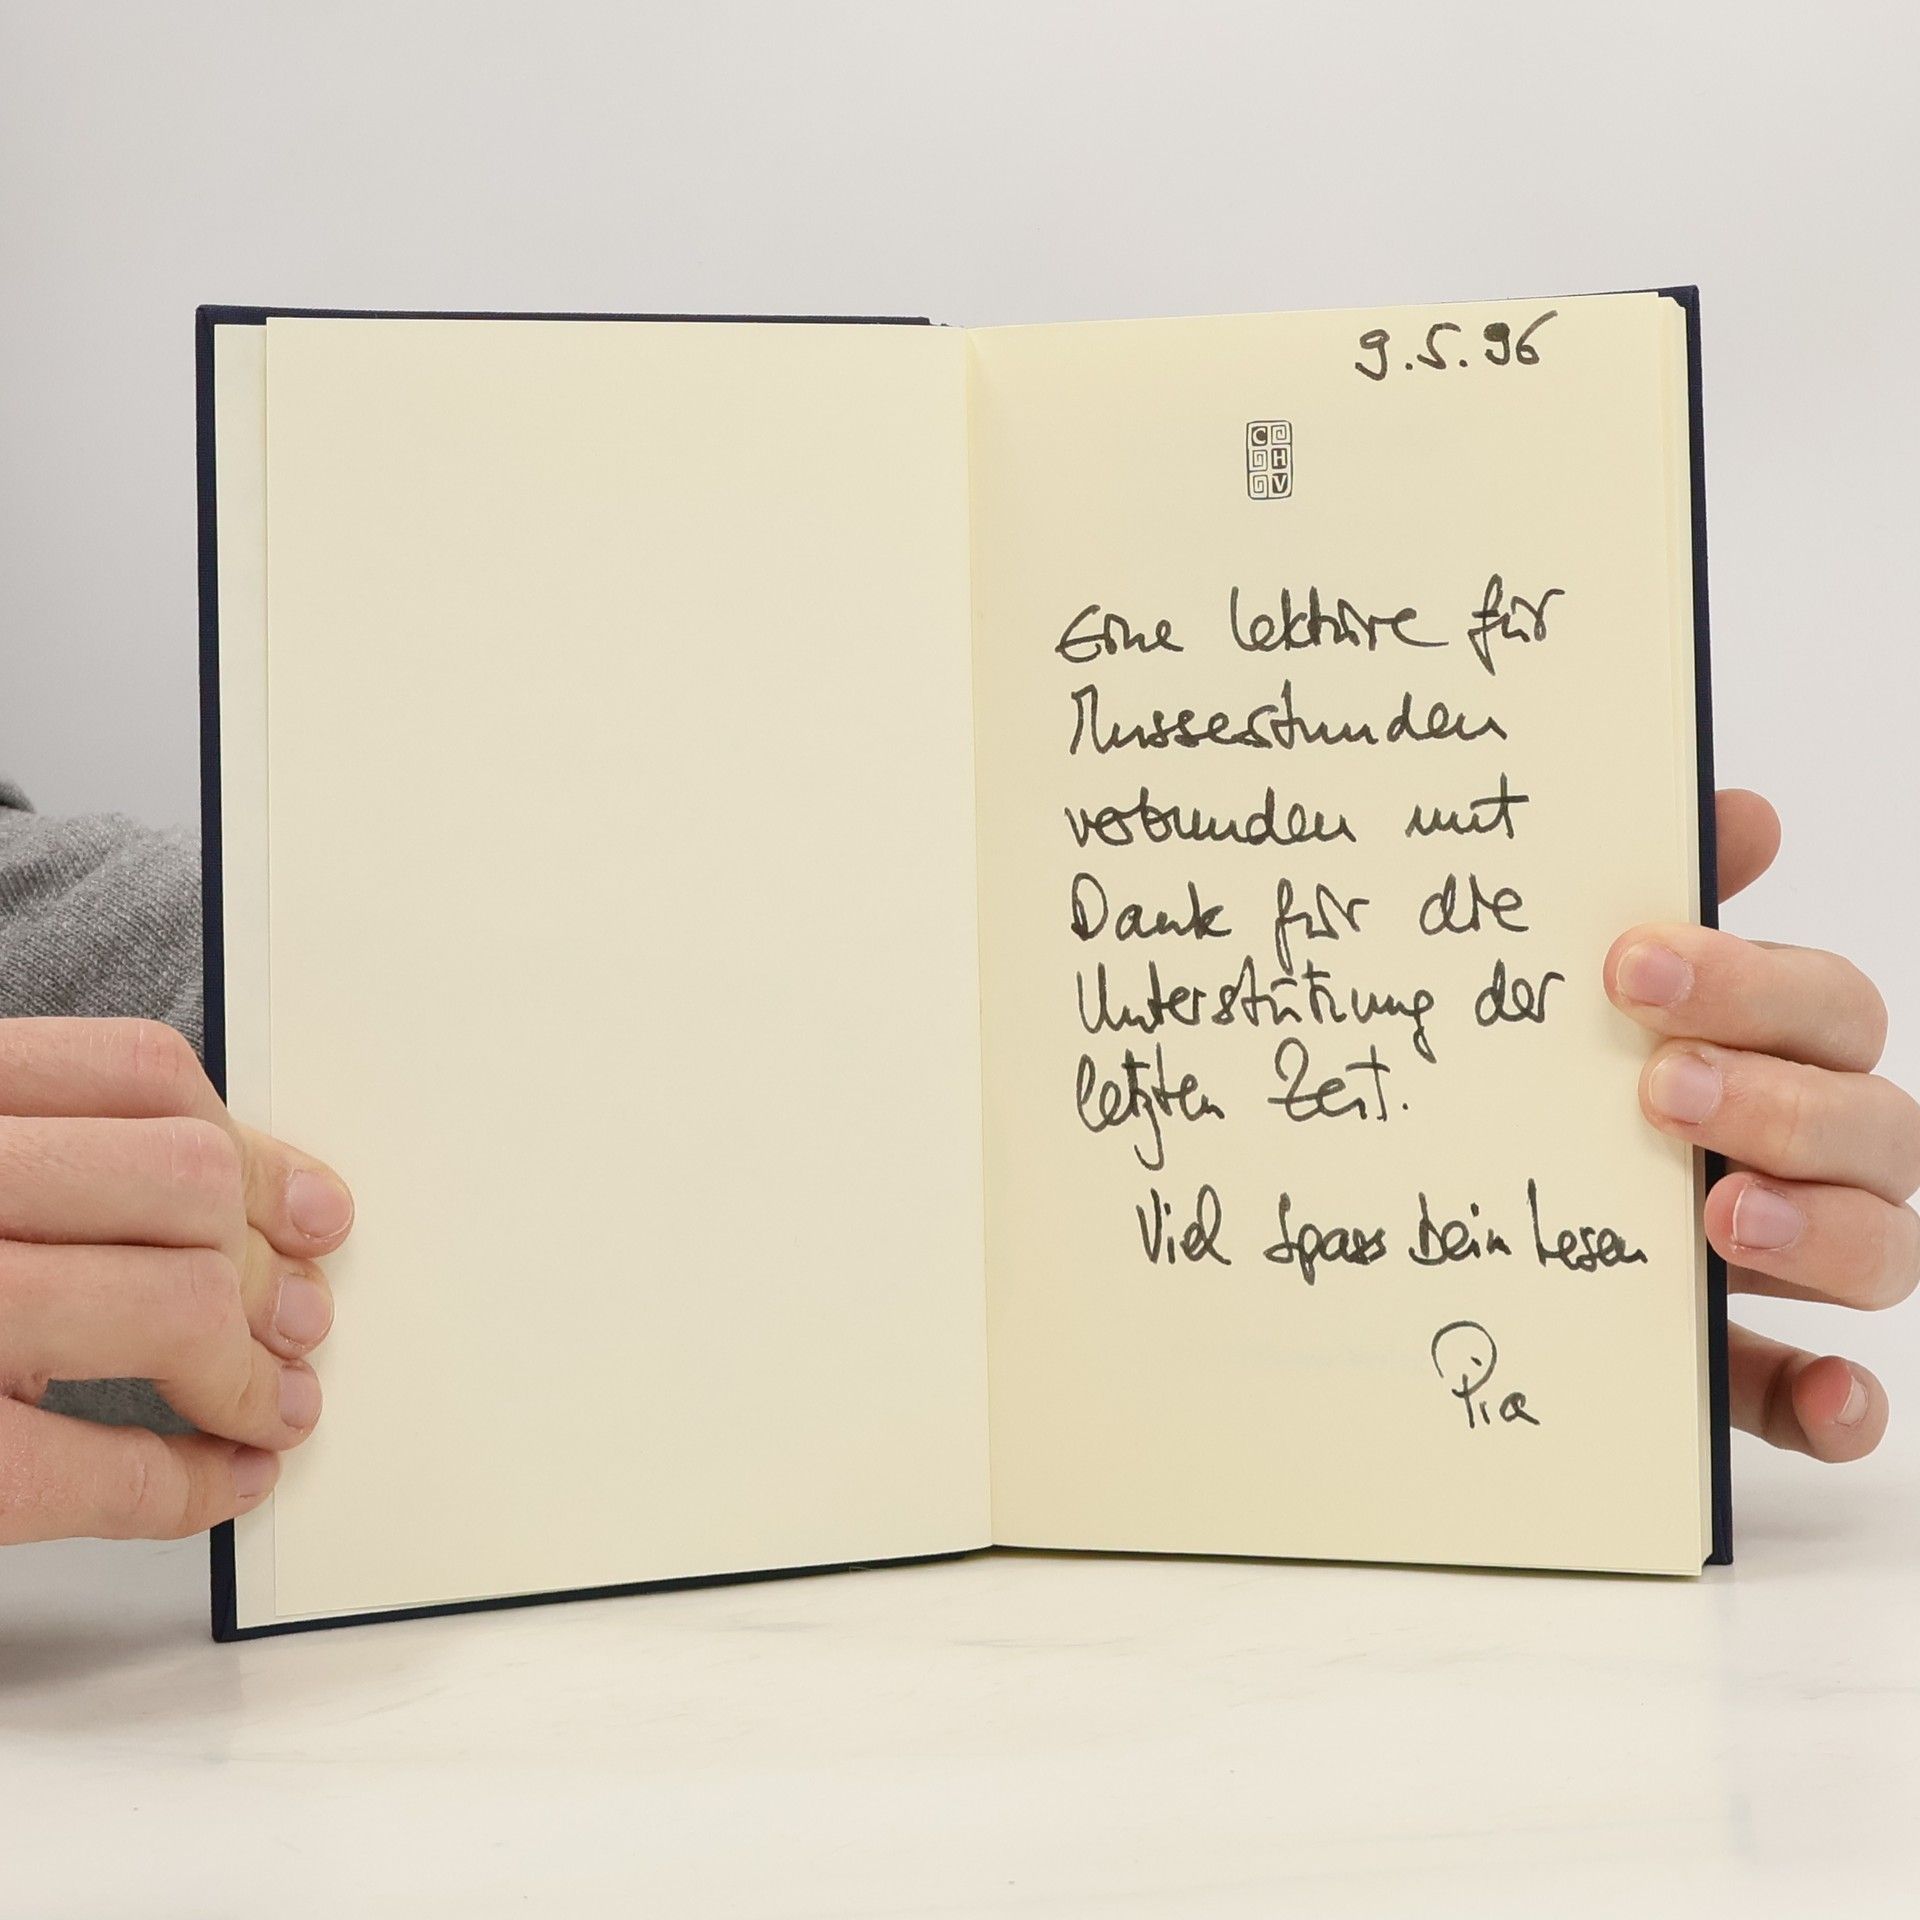 9.5.96
C
H
V
Eine Lektüre für
Mussestunden
verbunden mit
Dank für die
Unterstützung der
letzten Zeit.
Viel Spass beim Lesen
Pia